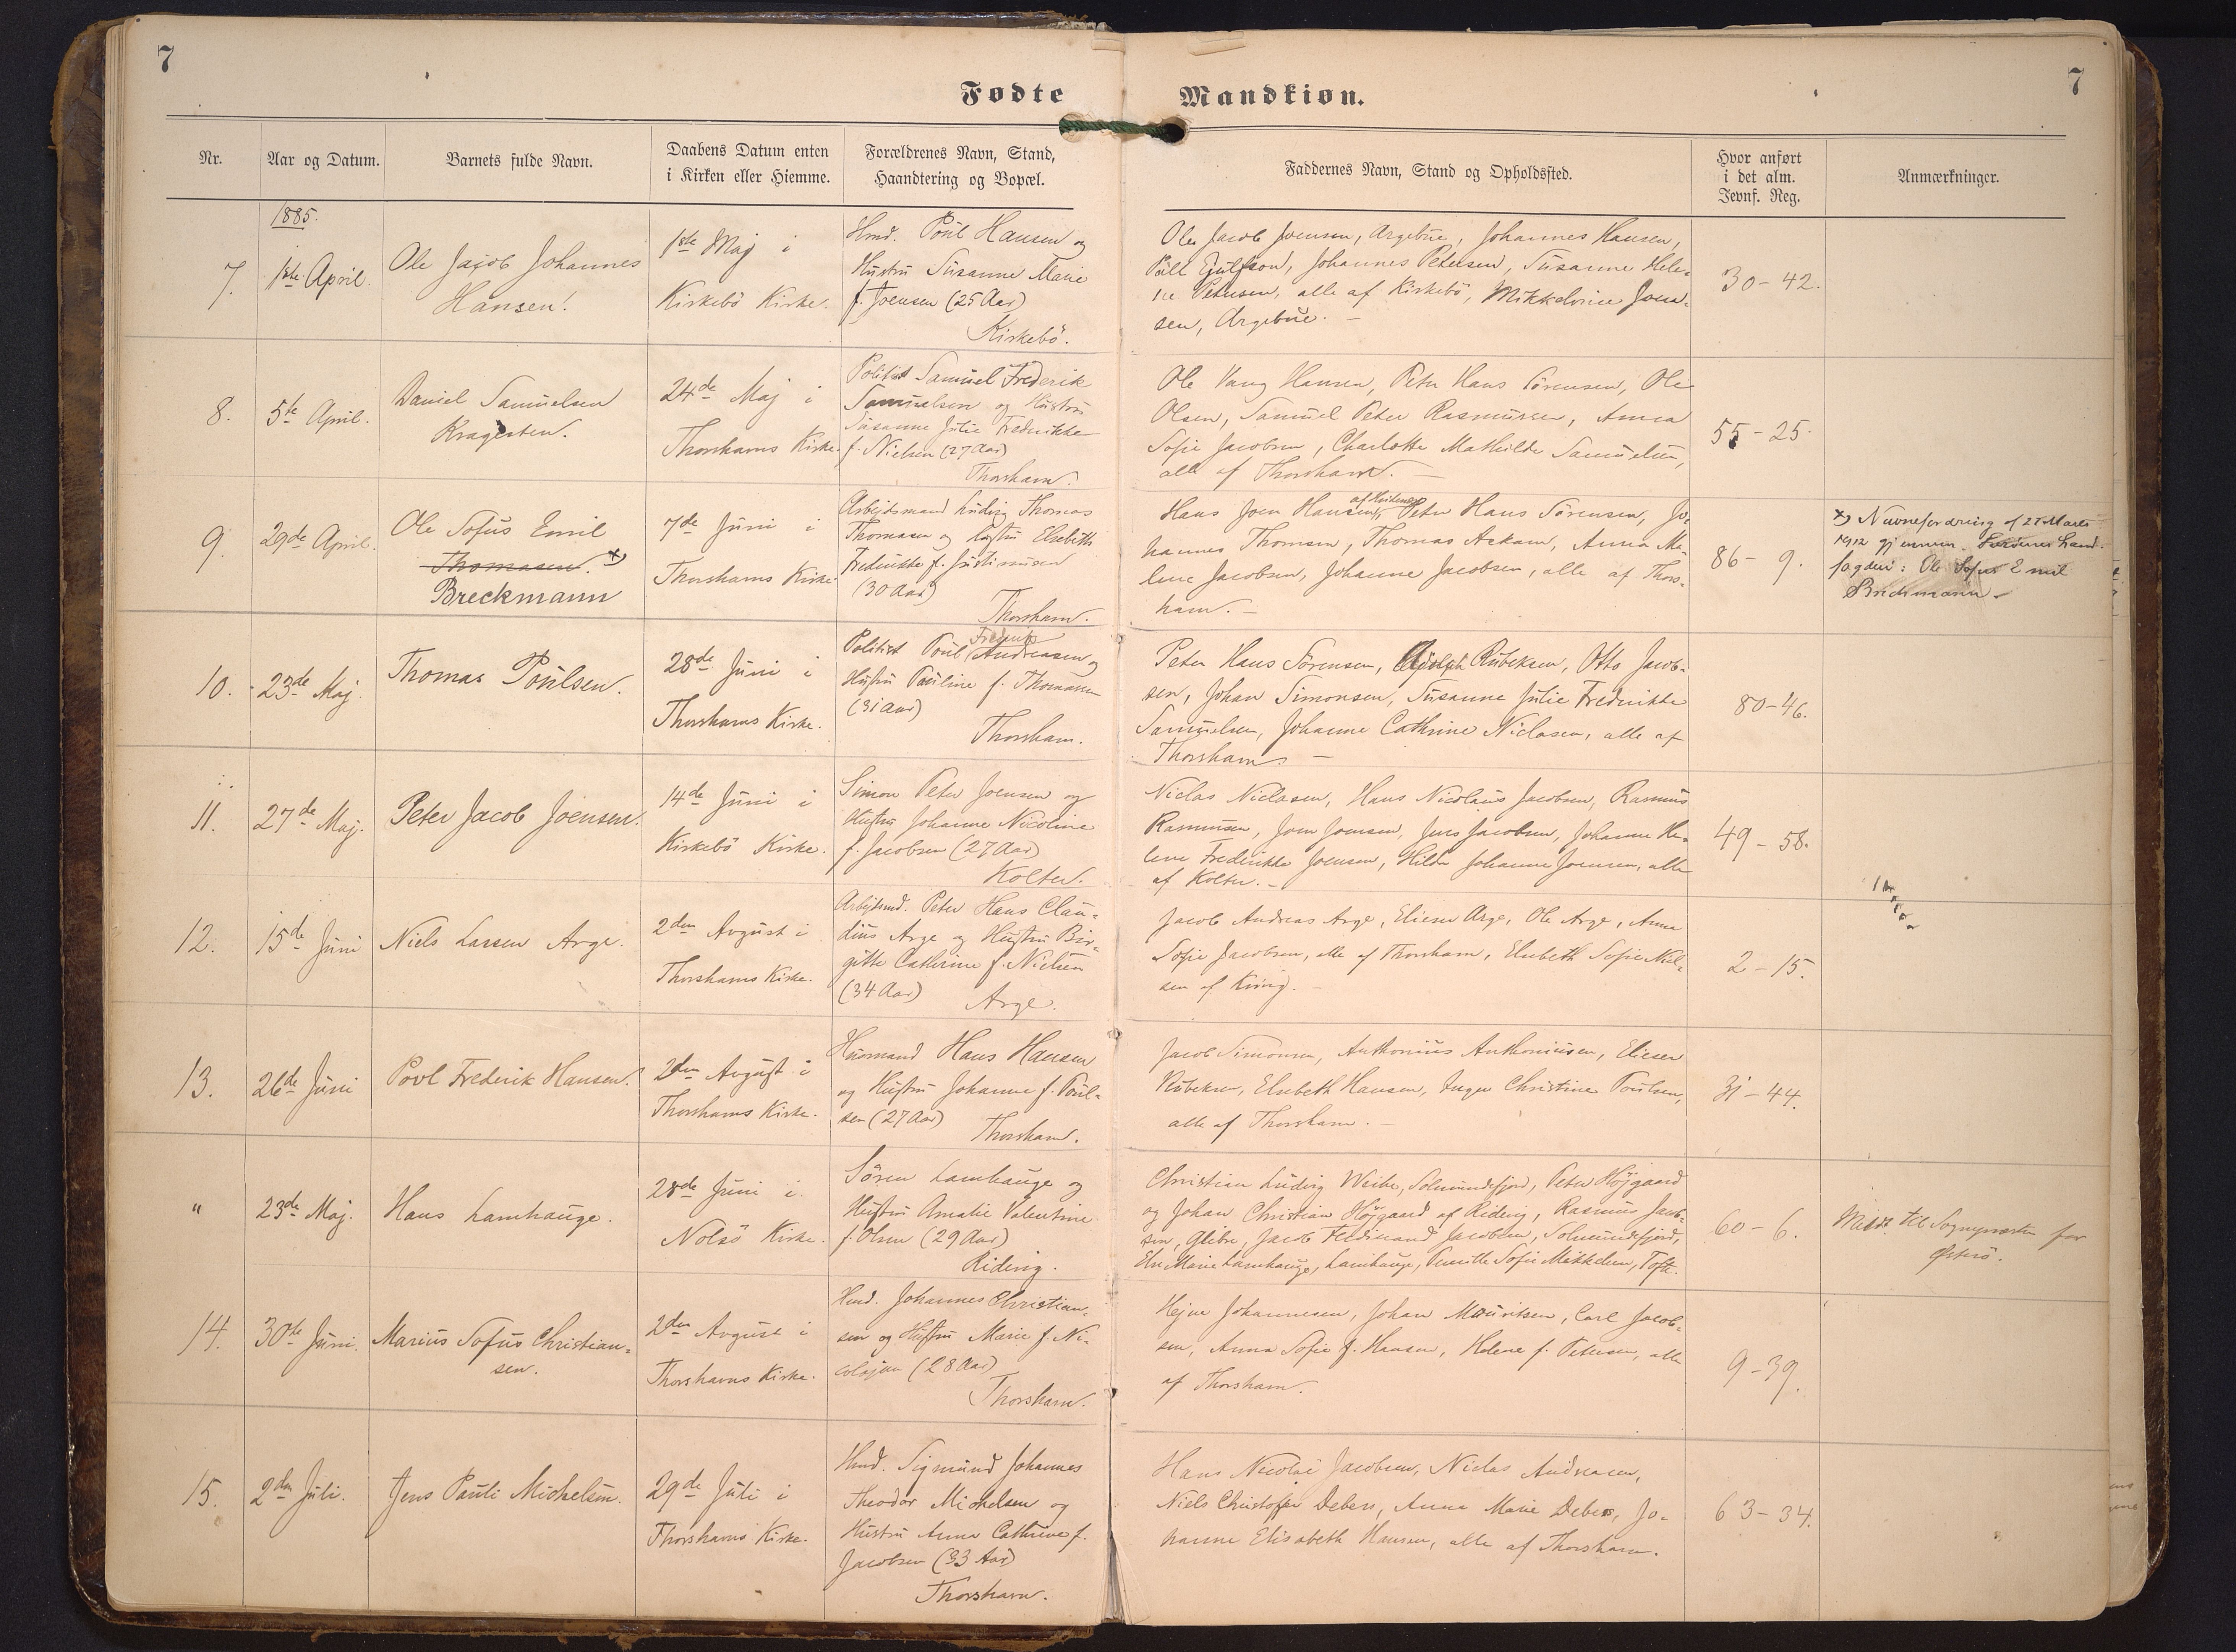 7
7
Fødte
Mandkiøn.
Nr.
Aar og Datum.
Barnets fulde Navn.
Daabens Datum enten
i Kirken eller Hiemme.
Forældrenes Navn, Stand,
Haandtering og Bopæl.
Faddernes Navn, Stand og Opholdssted.
Hvor anført
i det alm.
Jevnf. Reg.
Anmærkninger.
1885.
7.
1ste April.
Ole Jacob Johannes
Hansen.
1ste Maj i
Kirkebö Kirke.
Hmd. Poul Hansen og
Hustru Susanne Marie
f. Joensen (25 Aar)
Kirkebö.
Ole Jacob Joensen, Argebøe, Johannes Hansen,
Johannes Petersen, Susanne Hele-
ne Petersen, alle af Kirkebö, Mikkeline Joen-
sen, Argebøe. —
30-42.
8.
5te April.
Daniel Samuelsen
Kragesten.
24de Maj i
Thorshavns Kirke.
Politist Samuel Frederik
Samuelsen og Hustru
Susanne Julie Fredrikke
f. Nielsen (27 Aar)
Thorshavn.
Ole Vang Hansen, Peter Hans Sörensen, Ole
Olsen, Samuel Peter Rasmussen, Anna
Sofie Jacobsen, Charlotte Mathilde Samuelsen,
alle af Thorshavn. —
55-25.
9.
29de April.
Ole Sofus Emil
Thomasen. x)
Breckmann
7de Juni i
Thorshavns Kirke
Arbejdsmand Ludvig Thomas
Thomasen og Hustru Elsebeth
Fredrikke f. Justinussen
(30 Aar)
Thorshavn.
af Hvidenæs
Hans Joen Hansen, Peter Hans Sörensen, Jo-
hannes Thomsen, Thomas Askam, Anna Ma-
lene Jacobsen, Johanne Jacobsen, alle af Thors-
havn. —
86-9.
x) Navneforandring af 27 Marts
1912 gjennem Færøernes Land-
fogderi: Ole Sofus Emil
Breckmann.
10.
23de Maj.
Thomas Poulsen.
28de Juni i
Thorshavns Kirke.
Frederik
Politist Poul Andreasen og
Hustru Pauline f. Thomasen
(31 Aar)
Thorshavn.
Peter Hans Sörensen, Adolph Rubeksen, Otto Jacob-
sen, Johan Simonsen, Susanne Julie Fredrikke
Samuelsen, Johanne Cathrine Niclasen, alle af
Thorshavn. —
80-46.
11.
27de Maj.
Peter Jacob Joensen.
14de Juni i
Kirkebö Kirke.
Simon Peter Joensen og
Hustru Johanne Nicoline
f. Jacobsen (27 Aar)
Kolter.
Niclas Niclasen, Hans Nicolaus Jacobsen, Rasmus
Rasmussen, Joen Joensen, Jens Jacobsen, Johanne He-
lene Fredrikke Joensen, Hilda Johanne Joensen, alle
af Kolter. —
49-58.
12.
15de Juni
Niels Lassen Arge.
2den Avgust i
Thorshavns Kirke.
Arbejdsmd. Peter Hans Clau-
dius Arge og Hustru Bir-
gitte Cathrine f. Nielsen
(34 Aar)
Arge.
Jacob Andreas Arge, Elieser Arge, Ole Arge, Anna
Sofie Jacobsen, alle af Thorshavn, Elsebeth Sofie Niel-
sen af Kvivig. —
2-15.
13.
26de Juni
Povl Frederik Hansen.
2den Avgust i
Thorshavns Kirke.
Huusmand Hans Hansen
og Hustru Johanne f. Poul-
sen (27 Aar)
Thorshavn.
Jacob Simonsen, Anthonius Anthoniussen, Elieser
Rubeksen, Elsebeth Hansen, Inger Christine Poulsen,
alle af Thorshavn. —
31-44.
"
23de Maj.
Hans Lamhauge.
28de Juni i
Nolsö Kirke.
Sören Lamhauge og
Hustru Amalie Valentine
f. Olsen (29 Aar)
Ridevig.
Christian Ludvig Weihe, Solmundefjord, Peter Höjgaard
og Johan Christian Höjgaard af Ridevig, Rasmus Jacob-
sen, Glibre, Jacob Ferdinand Jacobsen, Solmundefjord,
Else Marie Lamhauge, Lamhauge, Pernille Sofie Mikkelsen, Tofte.
60-6.
Meldt til Sognepræsten for
Østerö.
14.
30te Juni.
Marius Sofus Christian-
sen.
2den Avgust i
Thorshavns Kirke.
Hmd. Johannes Christian-
sen og Hustru Marie f. Ni-
colajsen (28 Aar)
Thorshavn.
Hejne Johannesen, Johan Mouritsen, Carl Jacob-
sen, Anna Sofie f. Hansen, Helene f. Petersen, alle
af Thorshavn.
9-39.
15.
2den Juli.
Jens Pauli Michelsen.
29de Juli i
Thorshavns Kirke.
Hmd. Sigmund Johannes
Theodor Michelsen og
Hustru Anna Cathrine f.
Jacobsen (33 Aar)
Thorshavn.
Hans Nicolai Jacobsen, Niclas Andreasen,
Niels Christoffer Debes, Anna Marie Debes, Jo-
hanne Elisabeth Hansen, alle af Thorshavn.
63-34.